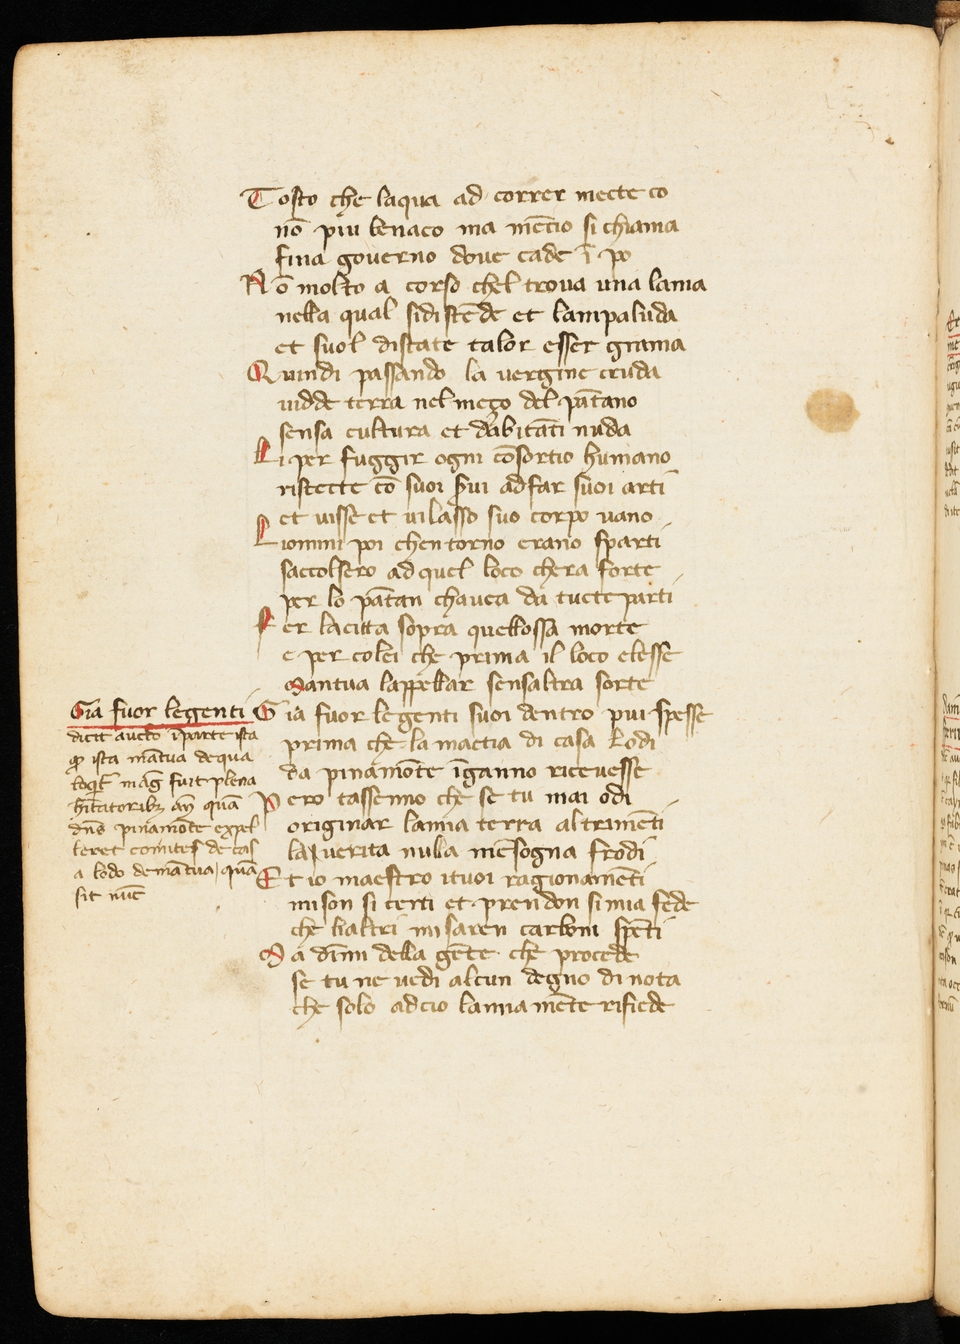 Tosto che laqua ad correr mecte co
nō piu benaco ma mēcio si chiama
fina governo dove cade ī po
Nō molto a corso chel trova una lama
nella qual sidistēde et lampaluda
et suol distate talor esser grama
Quindi passando la vergine cruda
vidde terra nel meço del pātano
sensa cultura et dabitāti nuda
Li per fuggir ogni cōsortio humano
ristecte cō suoi ẜvi adfar suoi arti
et visse et vi lasso suo corpo vano
Liomini poi chentorno erano sparti
saccolsero ad quel loco chera forte
per lo pātan chavea da tucte parti
Fer lacitta sopra quellossa morte
e per colei che prima il loco elesse
Mantua lappellar sensaltra sorte
Già fuor legenti suoi dentro piu spesse
prima che la mactia di casa lodi
da pinamōte īganno ricevesse
Pero tassenno che se tu mai odi
originar lamia terra altrimēti
la verita nulla mēsogna frodi
Et io maestro ituoi ragionamēti
mi son si certi et prendon si mia fede
che lialtri mi saren carboni spēti
Ma dīmi della gēte che procede
se tu ne vedi alcun degno di nota
che solo adcio lamia mēte rifiede
Gia fuor legenti
dicit auctō ī parte ista
ꝙ ista mātua dequa
loqr̄ maḡ fuit plena
hītatoribꝫ an̄ quā
dn̄s pinamōte expel
leret comites de cas
a lodo demātua, quā
sit nūc